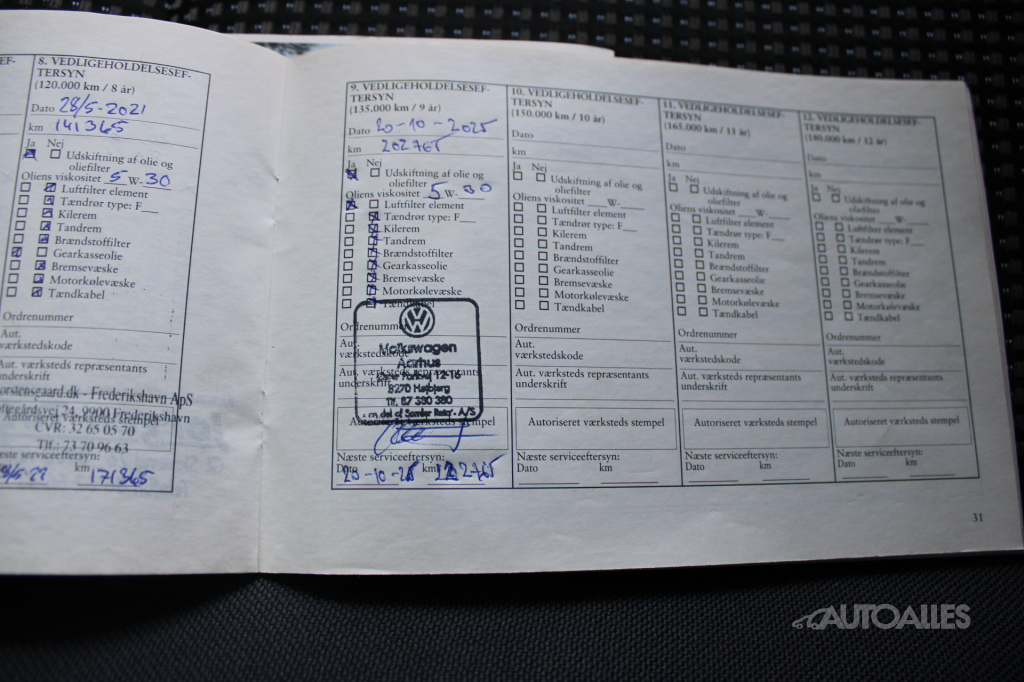 8. VEDLIGEHOLDELSESEF-
TERSYN
(120.000 km / 8 år)
Dato 28/5-2021
km 141365
Ja Nej
Udskiftning af olie og
oliefilter
Oliens viskositet 5 W-30
Luftfilter element
Tændrør type: F__
Kilerem
Tandrem
Brændstoffilter
Gearkasseolie
Bremsevæske
Motorkølevæske
Tændkabel
Ordrenummer
Aut.
værkstedskode
Aut. værksteds repræsentants
underskrift
orstensgaard.dk - Frederikshavn ApS
9900 Frederikshavn
Autoriseret værksteds stempel
CVR: 32 65 05 70
Tlf.: 73 70 96 63
æste serviceeftersyn:
km
171365
9. VEDLIGEHOLDELSESEF-
TERSYN
(135.000 km / 9 år)
Dato 20-10-2025
km 202765
Ja Nej
Udskiftning af olie og
oliefilter
Oliens viskositet 5 W-30
Luftfilter element
Tændrør type: F__
Kilerem
Tandrem
Brændstoffilter
Gearkasseolie
Bremsevæske
Motorkølevæske
Tændkabel
Ordrenummer
Aut.
værkstedskode
Aut. værksteds repræsentants
underskrift
Volkswagen
Aarhus
12-16
8270 Højbjerg
Tlf. 87 380 380
en del af Semler Retail A/S
Autoriseret værksteds stempel
Næste serviceeftersyn:
Dato km
20-10-26
10. VEDLIGEHOLDELSESEF-
TERSYN
(150.000 km / 10 år)
Dato
km
Ja Nej
Udskiftning af olie og
oliefilter
Oliens viskositet __W-__
Luftfilter element
Tændrør type: F__
Kilerem
Tandrem
Brændstoffilter
Gearkasseolie
Bremsevæske
Motorkølevæske
Tændkabel
Ordrenummer
Aut.
værkstedskode
Aut. værksteds repræsentants
underskrift
Autoriseret værksteds stempel
Næste serviceeftersyn:
Dato km
11. VEDLIGEHOLDELSESEF-
TERSYN
(165.000 km / 11 år)
Dato
km
Ja Nej
Udskiftning af olie og
oliefilter
Oliens viskositet __W-__
Luftfilter element
Tændrør type: F__
Kilerem
Tandrem
Brændstoffilter
Gearkasseolie
Bremsevæske
Motorkølevæske
Tændkabel
Ordrenummer
Aut.
værkstedskode
Aut. værksteds repræsentants
underskrift
Autoriseret værksteds stempel
Næste serviceeftersyn:
Dato km
12. VEDLIGEHOLDELSESEF-
TERSYN
(180.000 km / 12 år)
Dato
km
Ja Nej
Udskiftning af olie og
oliefilter
Oliens viskositet __W-__
Luftfilter element
Tændrør type: F__
Kilerem
Tandrem
Brændstoffilter
Gearkasseolie
Bremsevæske
Motorkølevæske
Tændkabel
Ordrenummer
Aut.
værkstedskode
Aut. værksteds repræsentants
underskrift
Autoriseret værksteds stempel
Næste serviceeftersyn:
Dato km
31
AUTOALLES